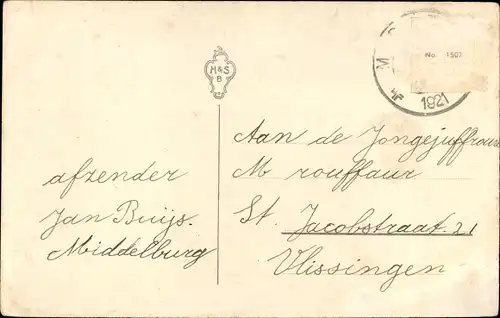 No. 1503
M
1921
M&S
B
Aan de Jongejuffrouw
M rouffaur
St. Jacobstraat 21
Vlissingen
afzender
Jan Buijs.
Middelburg